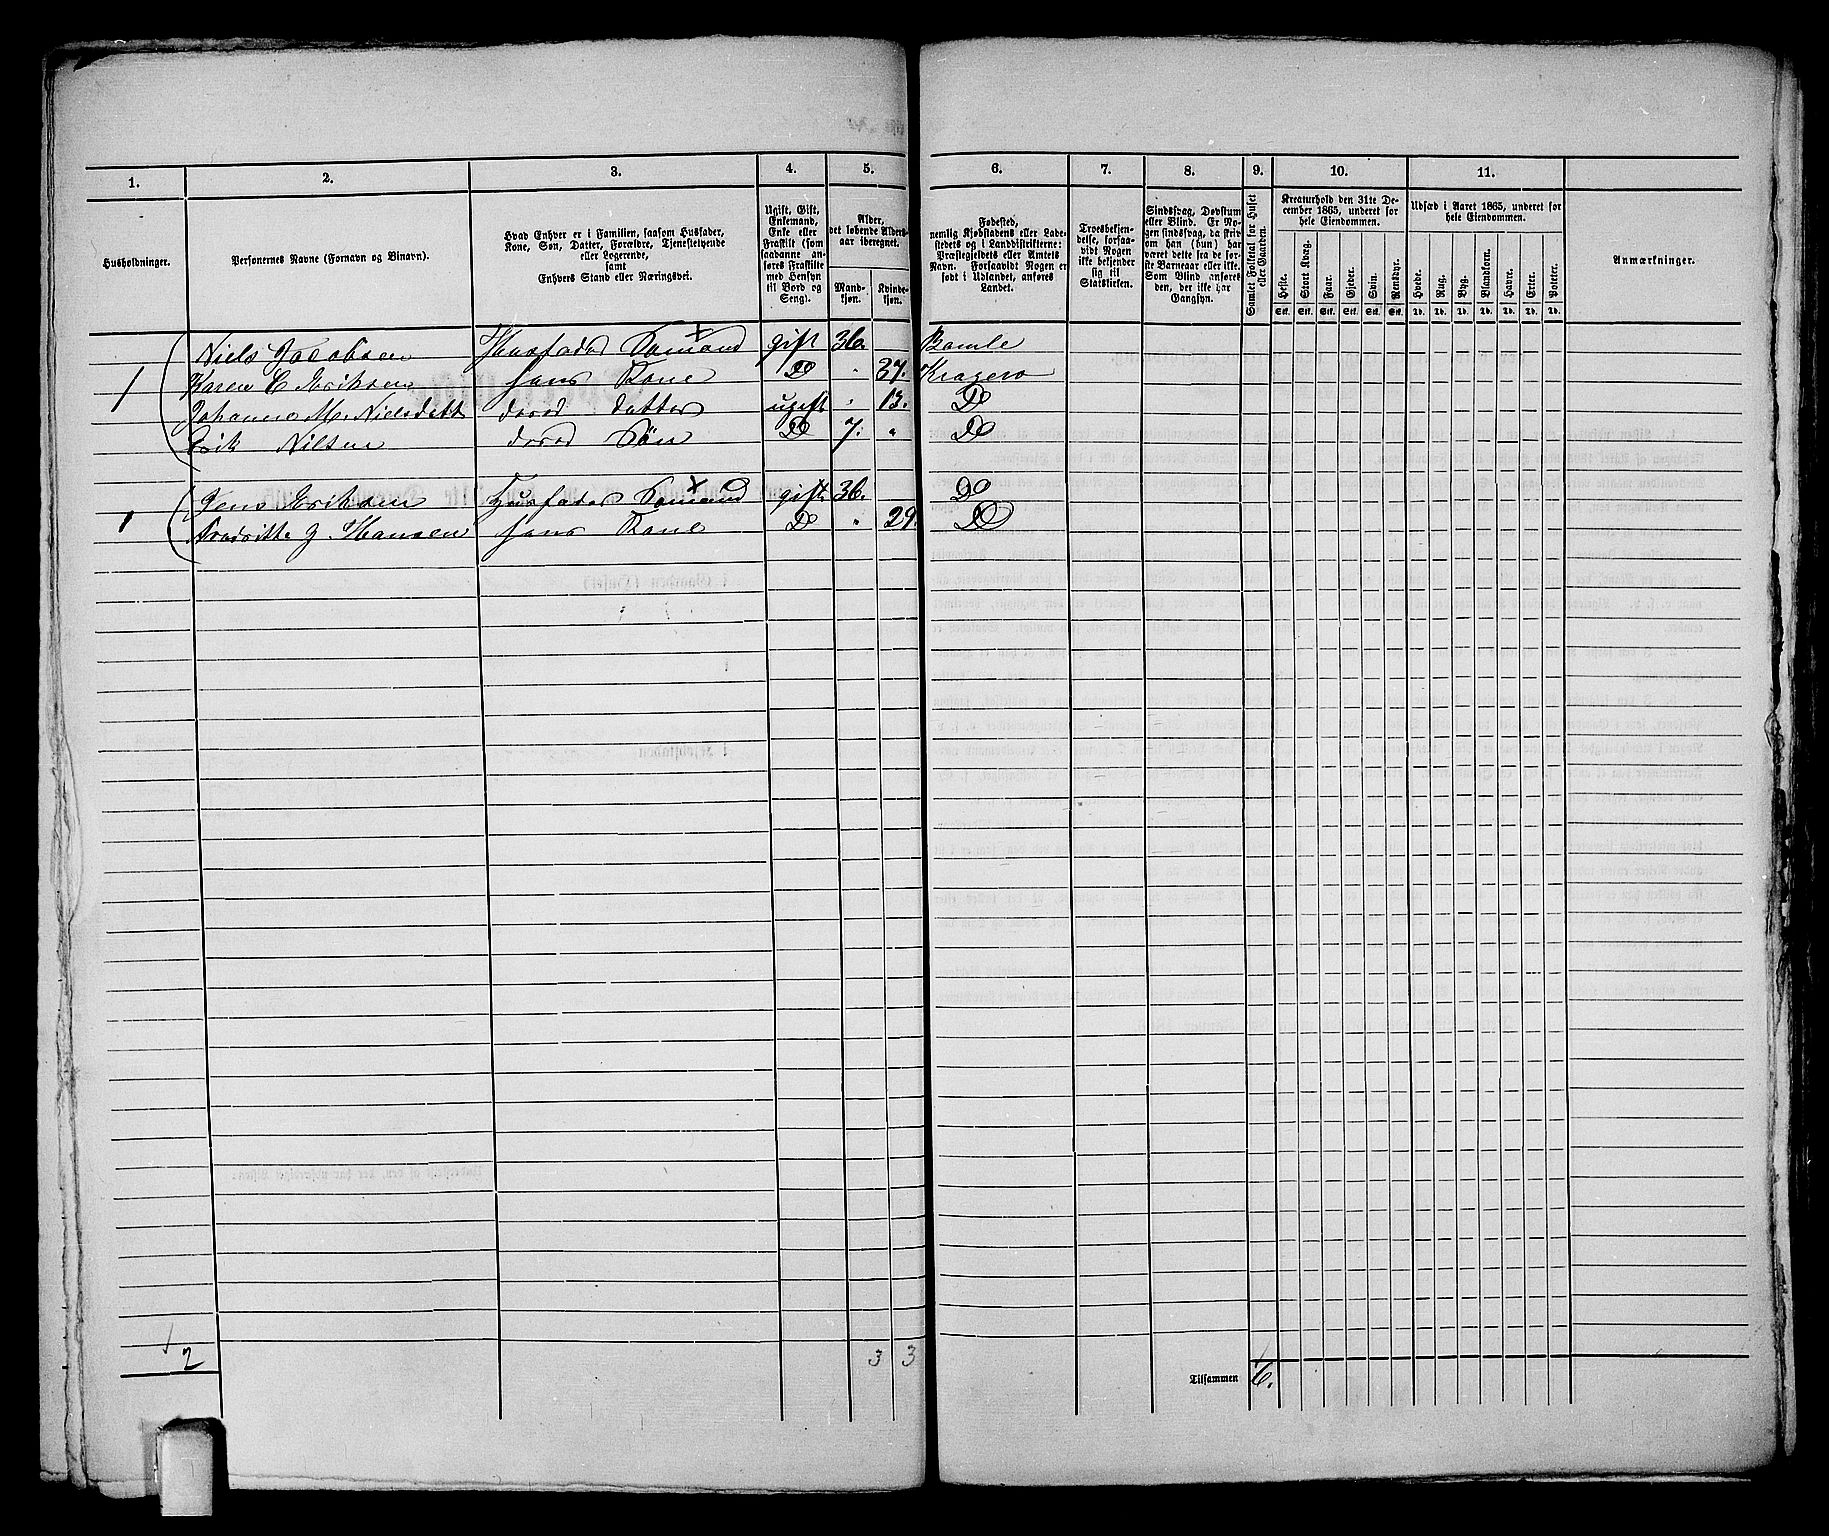 1. 2. 3. 4. 5. 6. 7. 8. 9. 10. 11.
Husholdninger.
Personernes Navne (Fornavn og Binavn).
Hvad Enhver er i Familien, saasom Husfader,
Kone, Søn, Datter, Forældre, Tjenestetyende
eller Logerende,
samt
Enhvers Stand eller Næringsvei.
Ugift, Gift,
Enkemand,
Enke eller
Fraskilt (som
saadanne an-
føres Fraskilte
med Hensyn
til Bord og
Seng).
Alder,
det løbende Alders-
aar iberegnet.
Mand-
kjøn.
Kvinde-
kjøn.
Fødested,
nemlig Kjøbstadens eller Lade-
stedets og i Landdistrikterne:
Præstegjeldets eller Amtets
Navn. Forsaavidt Nogen er
født i Udlandet, anføres
Landet.
Troesbekjen-
delse, forsaa-
vidt Nogen
ikke bekjender
sig til
Statskirken.
Sindssvag, Døvstum
eller Blind. Er No-
gen sindssvag, da skriv
om han (hun) har
været dette fra de før-
ste Barneaar eller ikke.
Som Blind anføres
den, der ikke har
Gangsyn.
Samlet Folketal for Huset
eller Gaarden.
Kreaturhold den 31te De-
cember 1865, underet for
hele Eiendommen.
Heste. Stort Kvæg. Faar. Gjeder. Svin. Rensdyr.
Stk. Stk. Stk. Stk. Stk. Stk.
Udsæd i Aaret 1865, underet for
hele Eiendommen.
Hvede. Rug. Byg. Blandkorn. Havre. Erter. Poteter.
Td. Td. Td. Td. Td. Td. Td.
Anmærkninger.
Niels Jacobsen Husfader Sømand gift 36. Bamle
1 Karen C. Eriksen hans Kone Do " 37. Kragerø
Johanne M. Nielsdatt deres datter ugift " 13. Do
Erik Nilsen deres Søn Do 7. " Do
Jens Eriksen Husfader Sømand gift 36. Do
1 J. Hansen hans Kone Do " 29. Do
2 3 3 Tilsammen 6.